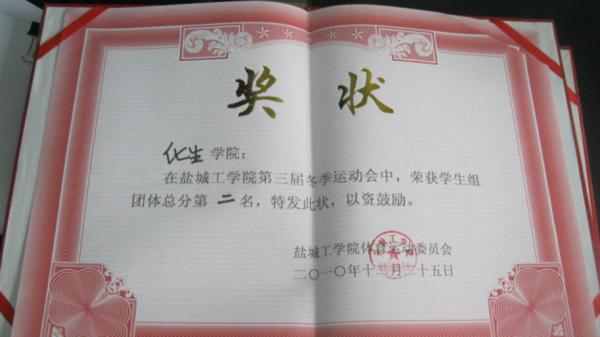 奖状
化生学院：
在盐城工学院第三届冬季运动会中，荣获学生组
团体总分第二名，特发此状，以资鼓励。
盐城工学院体育运动委员会
二〇一〇年十二月二十五日